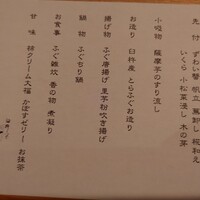 先付 ずわい蟹 帆立 鳥卸し 桜和え
いくら 小松菜浸し 木の芽
小吸物 薩摩芋のすり流し
お造り 臼杵産 とらふぐお造り
揚げ物 ふぐ唐揚げ 里芋粉吹き揚げ
鍋物 ふぐちり鍋
お食事 ふぐ雑炊 香の物 煮凝り
甘味 柿クリーム大福 かぼすゼリー お抹茶